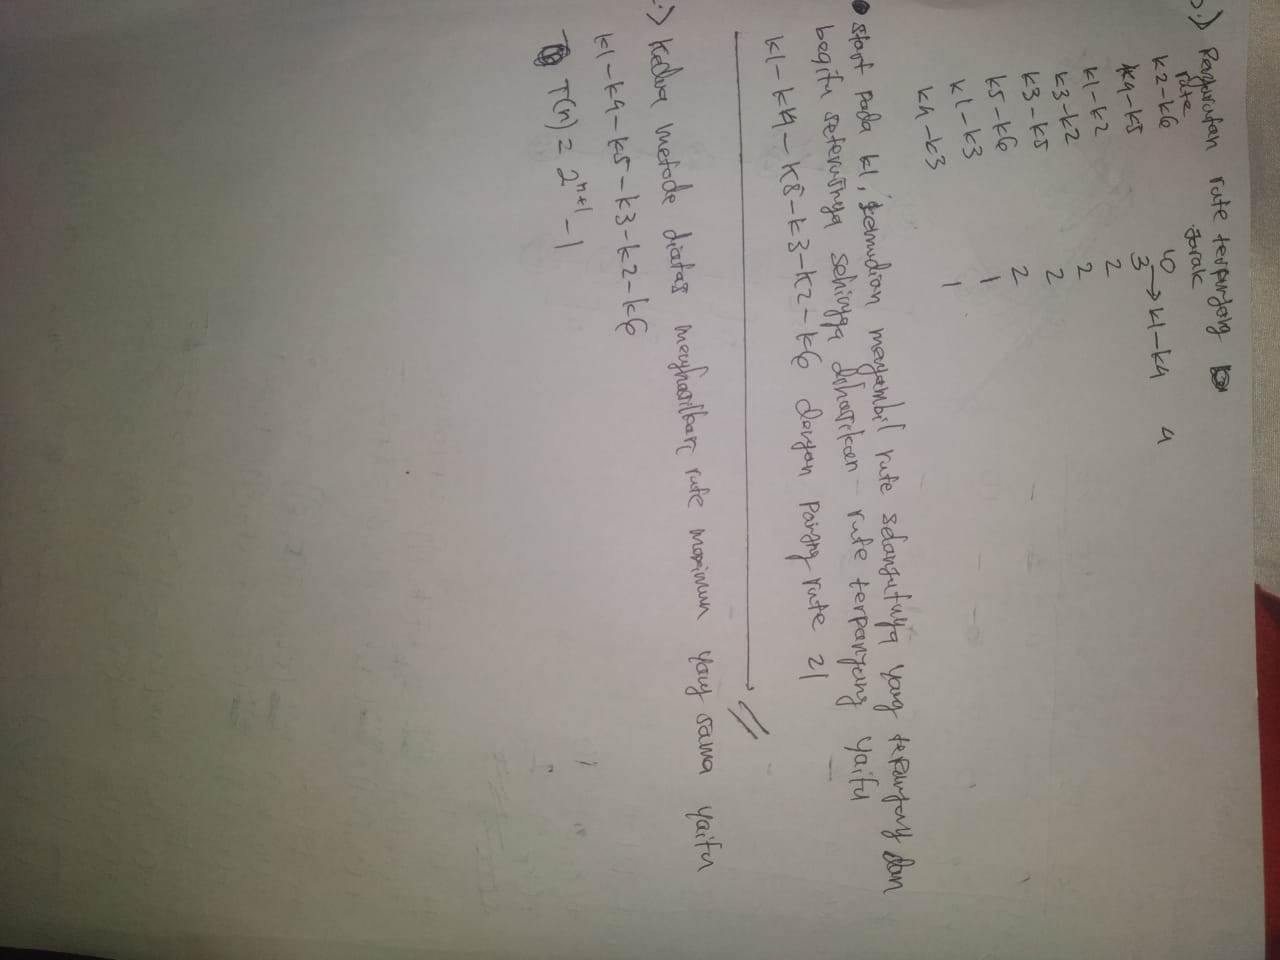 b.) Pengurutan rute terpanjang
rute jarak
k2-k6 10
k4-k5 3 → k1-k4 4
k1-k2 2
k3-k2 2
k3-k5 2
k5-k6 2
k1-k3 1
k4-k3 1
• start pada k1, kemudian mengambil rute selanjutnya yang terpanjang dan
begitu seterusnya sehingga dihasilkan rute terpanjang yaitu
k1-k4-k5-k3-k2-k6 dengan panjang rute 21
.) Kedua metode diatas menghasilkan rute maximum yang sama yaitu
k1-k4-k5-k3-k2-k6
T(n) = 2^{n+1} - 1